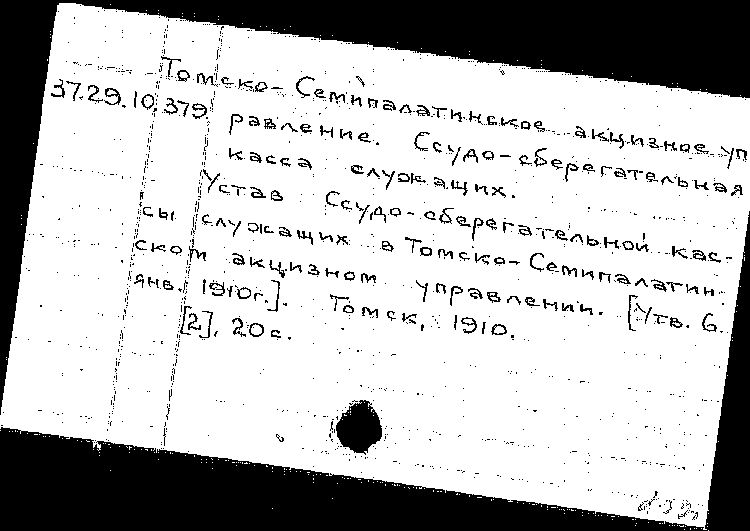 Томско-Семипалатинское акцизное уп
37.29.10.379. равление. Ссудо-сберегательная
касса служащих.
Устав Ссудо-сберегательной кас-
сы служащих в Томско-Семипалатин-
ском акцизном управлении. [Утв. 6.
янв. 1910г.]. Томск, 1910.
[2], 20с.